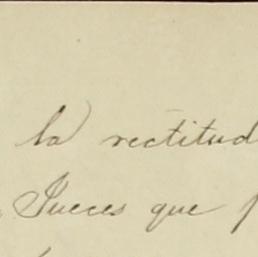 la rectitud
Jueces que